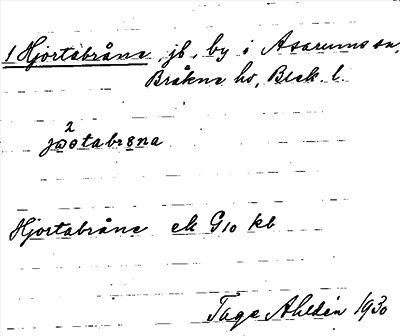 1 Hjortabråne, jb, by i Asarums sn,
Bräkne hd, Blek. l.
2
jɷotabrɷna
Hjortabråne ek G10 kb
Tage Ahldén 1930